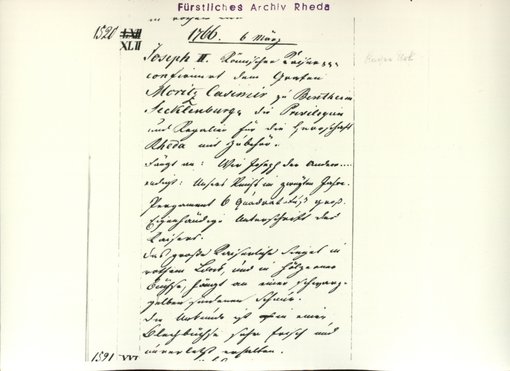 Fürstliches Archiv Rheda
in rothem
1590 XLII
XLII
1766. 6 März
Joseph II. Römischer Kaiser
confirmirt dem Grafen
Moritz Casimir zu Bentheim
Tecklenburg die Privilegien
und Regalien für die Herrschaft
Rheda mit Zubehör.
Fängt an: Wir Joseph der Ander....
endigt: Unsers Reichs im zweyten Jahre.
Pergament 6 Quadrat-Fuß groß.
Eigenhändige Unterschrift des
Kaisers.
Das große Kaiserliche Siegel in
rothem Wachs, und in hölzerner
Büchse, hängt an einer schwarz-
gelben seidenen Schnur.
Die Urkunde ist in einer
Blechbüchse sehr frisch und
unverletzt erhalten.
1591